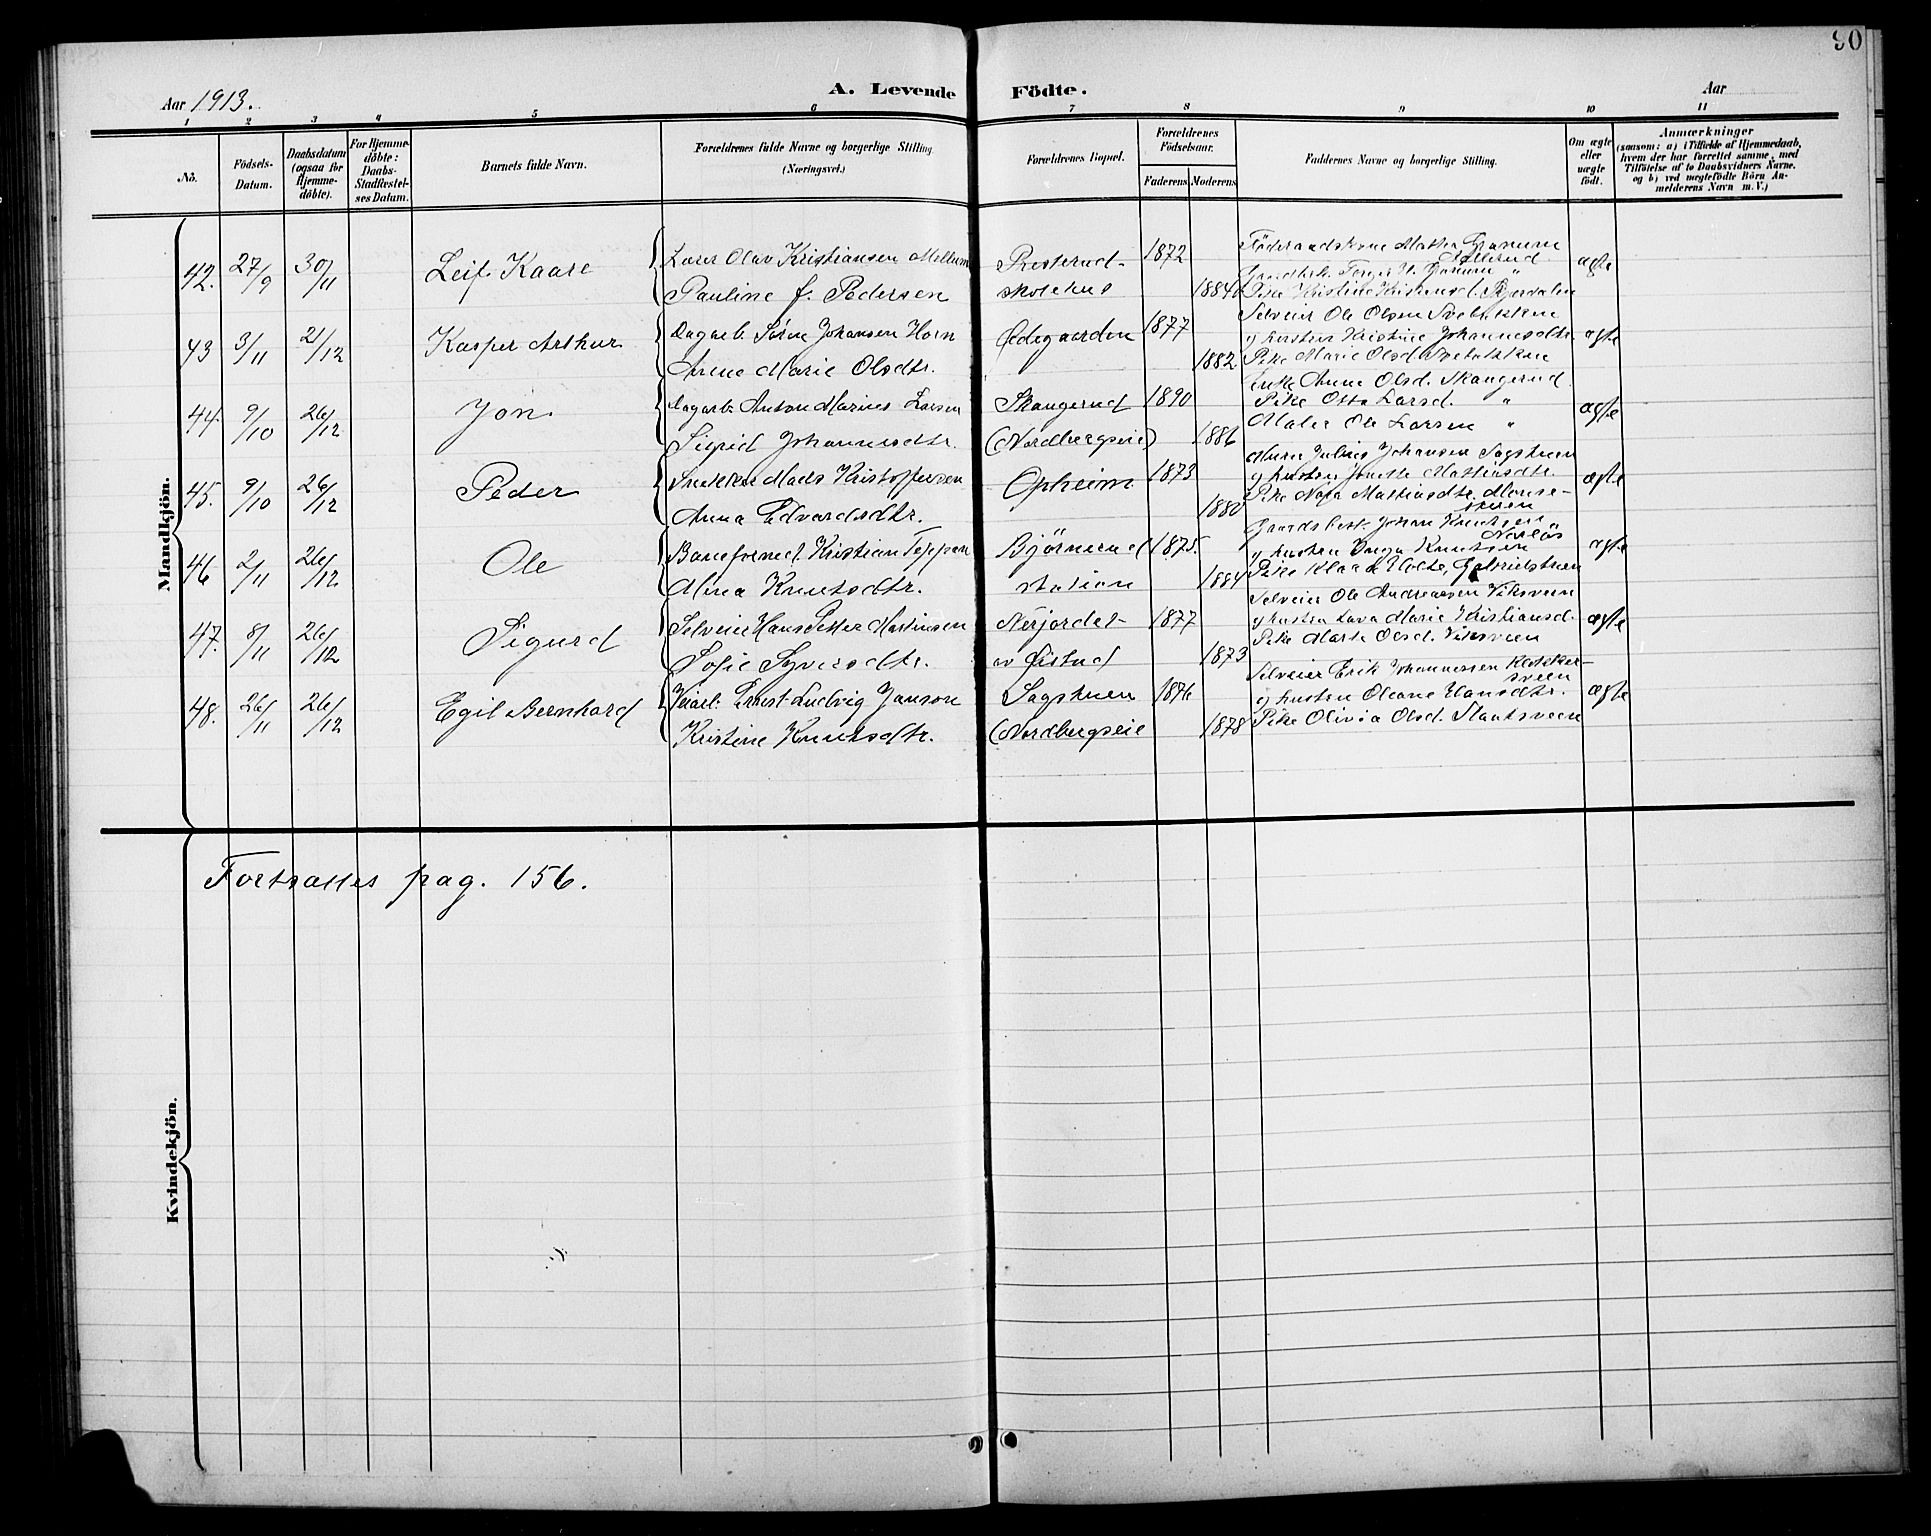 90
Aar 1913.
A. Levende Födte.
Aar
1 2 3 4 5 6 7 8 9 10 11
No.
Födsels-Datum.
Daabsdatum (ogsaa for Hjemmedöbte).
For Hjemmedöbte: Daabs-Stadfæstelses Datum.
Barnets fulde Navn.
Forældrenes fulde Navne og borgerlige Stilling. (Næringsvei.)
Forældrenes Bopæl.
Forældrenes Födselsaar.
Faderens Moderens
Faddernes Navne og borgerlige Stilling.
Om ægte eller uægte födt.
Anmærkninger
(saasom: a) i Tilfælde af Hjemmedaab, hvem der har forrettet samme, med Tilföielse af to Daabsvidners Navne, og b) ved uægtefödte Börn Anmelderens Navn m. V.)
Mandkjön.
42. 27/9 30/11 Leif Kaare
Lærer Olav Kristiansen Mellum
Pauline f. Pedersen
Presterud-
skolehus
1872
1884
ægte
43 3/11 21/12 Kasper Arthur
Dagarb. Søren Johansen Horn
Arene Marie Olsdtr.
Ødegaarden
1877
1882
Selveier Ole Olsen
og hustru Kristine Johannesdtr.
Pike Marie Olsd.
ægte
44. 9/10 26/12 Jon.
Dagarb. Anton Marius Larsen
Sigrid Johannesdtr.
Skangerud
(Nordbergseie)
1890
1886
Enke Anne Olsd. Skangerud
Pike Otta Larsd. "
Maler Ole Larsen "
ægte
45. 9/10 26/12 Peder
Snekker Mads Kristoffersen
Anna Edvardsdtr.
Opheim
1873
1880
Murer Julius Johansen Sagstuen
og hustru Josette Mathiasdtr.
ægte
46 2/11 26/12 Ole
Baneformd. Kristian Teppen
Alma Knutsdtr.
Bjørnerud
station
1875.
1884
Gaardbest. Johan Knutsen
og hustru Inga Knutsen
ægte
47. 8/11 26/12 Sigurd
Selveier Hans Petter Martinsen
Sofie Syversdtr.
Nerjordet
av Øistad
1877
1873
Selveier Ole Andreassen Viksveen
og hustru Lava Marie Kristiansd.
Pike Marte Olsd. Viksveen
ægte
48. 26/11 26/12 Egil Bernhard
Veiarb. Ernst Ludvig Janson
Kristine Knutsdtr.
Sagstuen
(Nordbergseie
1876
1878
Selveier Erik Johannessen Klokker-
sveen
og hustru Oleane Hansdtr.
Pike Olivia Olsd. Slaatsveen
ægte
Kvindekjön.
Fortsættes pag. 156.